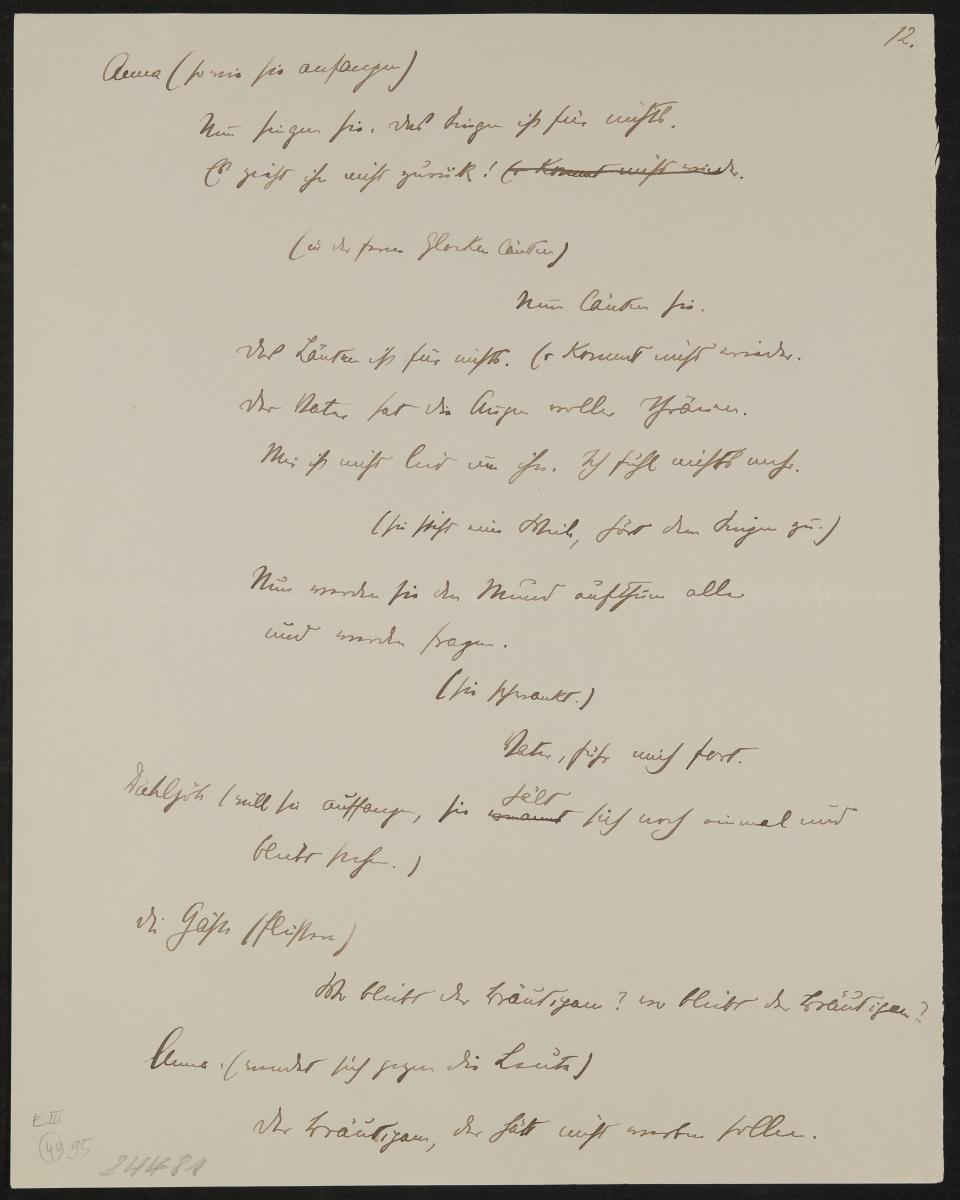 12.
Anna (so wie sie anfangen)
Nun singen sie. das Singen ist für nichts.
Es zieht ihn nicht zurück! Er kommt nicht wieder.
(in der ferne Glocken läuten)
Nun läuten sie.
das Läuten ist für nichts. Er kommt nicht wieder.
der Vater hat die Augen voller Thränen.
Mir ist nicht leid um ihn. Ich fühl nichts mehr.
(sie steht eine Weile, hört dem Singen zu.)
Nun werden sie den Mund aufthun alle
und werden fragen.
(sie schwankt.)
Vater, führ mich fort.
Dahlsjöh (will sie auffangen, sie
hält
ermannt sich noch einmal und
bleibt stehen.)
die Gäste (flüstern)
Wo bleibt der Bräutigam? wo bleibt der Bräutigam?
Anna. (wendet sich gegen die Leute)
der Bräutigam, der hätt nicht werben sollen.
E III
49 95
24481